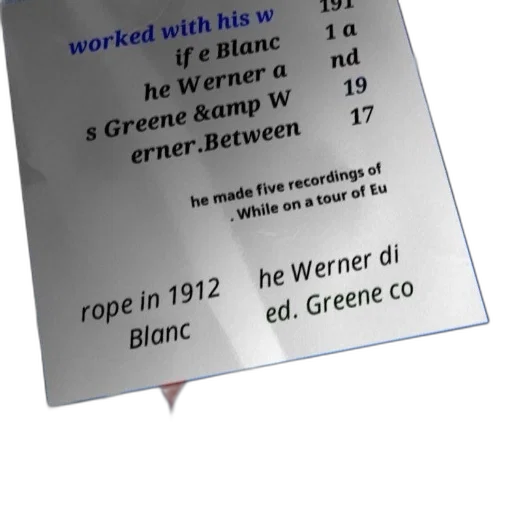 worked with his w
ife Blanc
he Werner a
s Greene &amp W
erner.Between
191
1 a
nd
19
17
he made five recordings of
. While on a tour of Eu
rope in 1912
Blanc
he Werner di
ed. Greene co